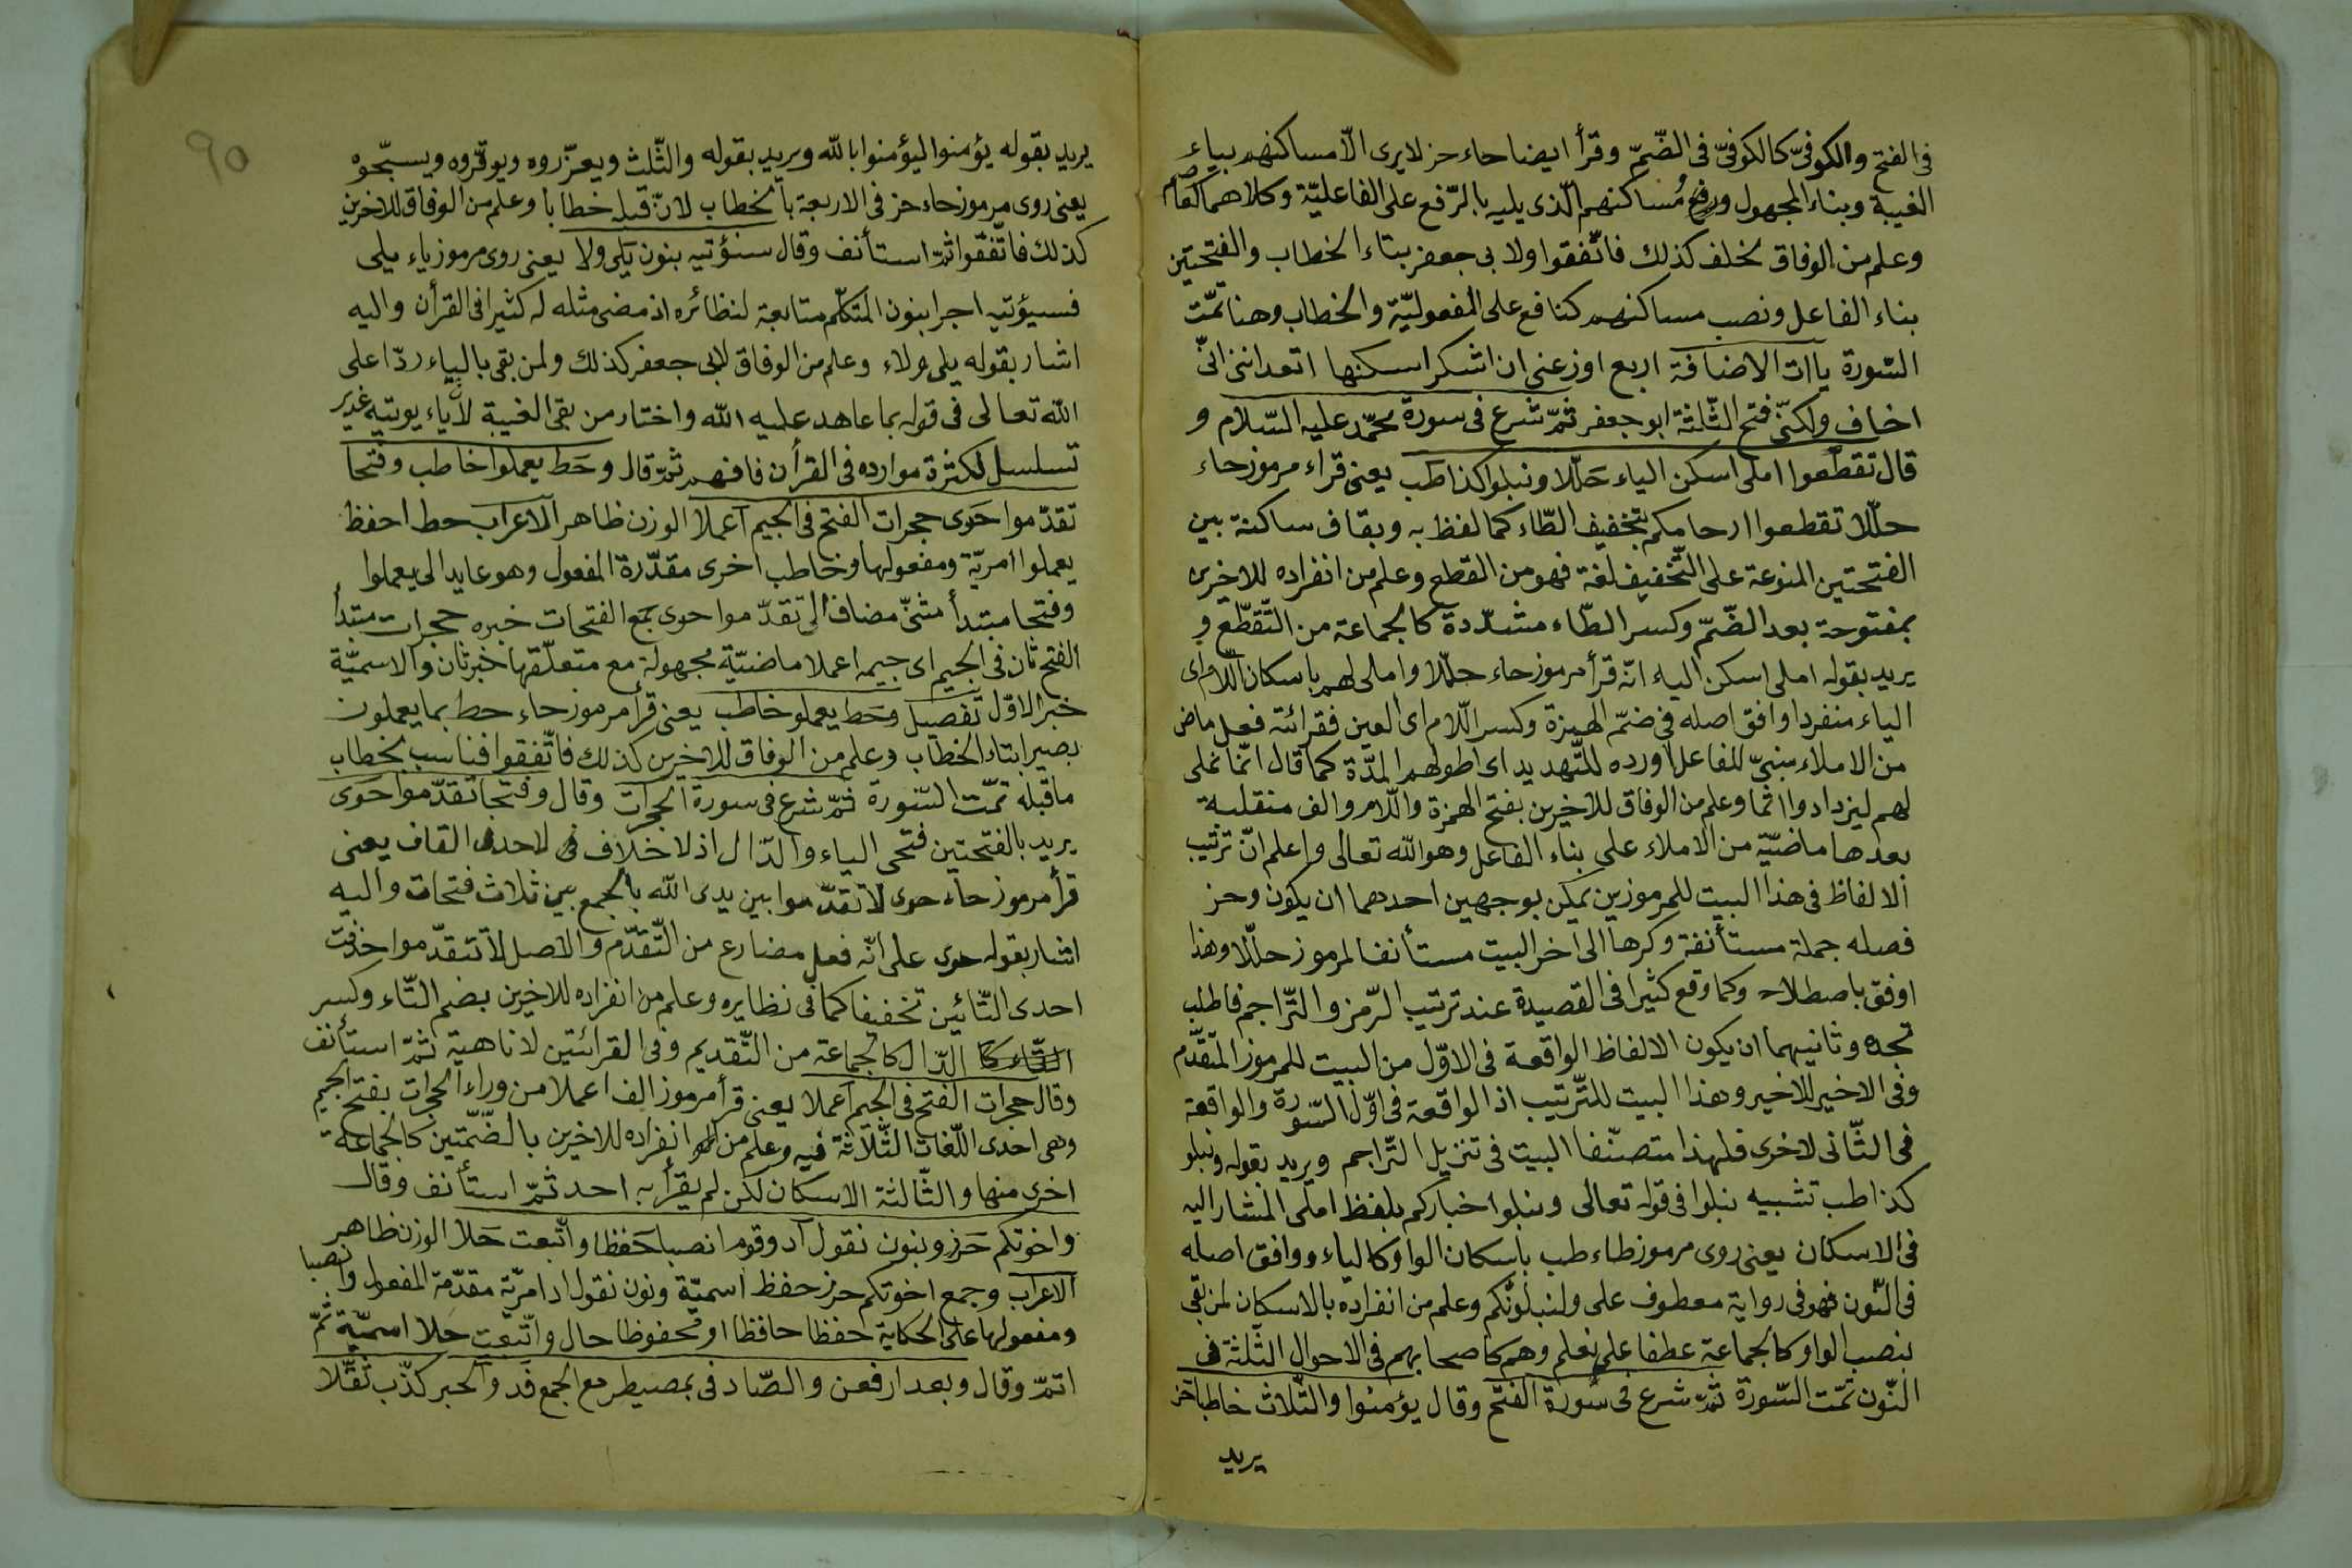 فى الفتح والكوفىّ كالكوفىّ فى الضّمّ وقرأ ايضا حاء حز لا يرى الّا مساكنهم بياء
الغيبة وبناء المجهول ورفع مُساكنهم الّذى يليه بالرّفع على الفاعليّة وكلاهما
وعلم من الوفاق لخلف كذلك فاتّفقوا ولابى جعفر بتاء الخطاب والفتحتين
بناء الفاعل ونصب مساكنهم كنافع على المفعوليّة والخطاب وهنا تمّت
السّورة ياات الاضافة اربع اوزعنى ان اشكر اسكنها اتعداننى انّى
اخاف ولكنّى فتح الثّلثة ابو جعفر ثمّ شرع فى سورة محمّد عليه السّلام و
قال تقطّعوا املى اسكن الياء حَلّلا ونبلوا كذا طب يعنى قراء مرموز حاء
حلّلا تقطعوا ارحامكم بتخفيف الطّاء كما لفظ به وبقاف ساكنة بين
الفتحتين المنوعة على التّخفيف لغة فهو من القطع وعلم من انفراده للاخرين
بمفتوحة بعد الضّمّ وكسر الطّاء مشدّدة كالجماعة من التّقطّع و
يريد بقوله املى اسكن الياء انّه قرأ مرموز حاء حلّلا واملى لهم باسكان اللّام اى
الياء منفردا وافق اصله فى ضمّ الهمزة وكسر اللّام اى العين فقرائته فعل ماض
من الاملاء مبنىّ للفاعل اورده للتّهديد اى اطولهم المدّة كما قال انّما نملى
لهم ليزدادوا اثما وعلم من الوفاق للاخرين بفتح الهمزة واللّام والف منقلبة
بعدها ماضيّة من الاملاء على بناء الفاعل وهو الله تعالى واعلم انّ ترتيب
الالفاظ فى هذا البيت للمرموزين يمكن بوجهين احدهما ان يكون وحز
فصله جملة مستأنفة وكرها الى آخر البيت مستأنفا لمرموز حلّلا وهذا
اوفق باصطلاحه وكما وقع كثيرا فى القصيدة عند ترتيب الرّمز والتّراجم فاطلب
تجده وثانيهما ان يكون الالفاظ الواقعة فى الاوّل من البيت للمرموز المتقدّم
وفى الاخير للاخير وهذا البيت للتّرتيب اذ الواقعة فى اوّل السّورة والواقعة
فى الثّانى لاخرى فلهذا متصنّفا البيت فى تنزيل التّراجم ويريد بقوله ونبلو
كذا طب تشبيه نبلوا فى قوله تعالى ونبلوا اخباركم بلفظ املى المشار اليه
فى الاسكان يعنى روى مرموز طاء طب باسكان الواو كالياء ووافق اصله
فى النّون فهو فى رواية معطوف على ولنبلونّكم وعلم من انفراده بالاسكان لمن بقى
بنصب الواو كالجماعة عطفا على نعلم وهم كاصحابهم فى الاحوال الثّلثة فى
النّون تمّت السّورة ثمّ شرع فى سورة الفتح وقال يؤمنوا والثّلاث خاطبا حز
يريد
٩٥
يريد بقوله يؤمنوا ليؤمنوا بالله ويريد بقوله والثّلث ويعزّروه ويوقّروه ويسبّحوه
يعنى روى مرموز حاء حز فى الاربعة بالخطاب لانّ قبله خطابا وعلم من الوفاق للاخرين
كذلك فاتّفقوا ثمّ استأنف وقال سنؤتيه بنون يَلى ولا يعنى روى مرموز ياء يلى
فسيؤتيه اجرا بنون المتكلّم متابعة لنظائره اذ مضى مثله له كثيرا فى القرأن واليه
اشار بقوله يلى ولاء وعلم من الوفاق لابى جعفر كذلك ولمن بقى بالياء ردّا على
الله تعالى فى قوله بما عاهد عليه الله واختار من بقى الغيبة لانّ ياء يوتيه غدير
تسلسل لكثرة موارده فى القرأن فافهم ثمّ قال وحَط يعملوا خاطب وفتحا
تقدّموا حَوى حجرات الفتح فى الجيم اعملا الوزن ظاهر الاعراب حط احفظ
يعملوا امريّة ومفعولها وخاطب اخرى مقدّرة المفعول وهو عايد الى يعملوا
وفتحا مبتدأ مثنّى مضاف الى تقدّموا حوى جمع الفتحات خبره حجرات مبتدأ
الفتح ثان فى الجيم اى جيمه اعملا ماضيّة مجهولة مع متعلّقها خبر ثان والاسميّة
خبر الاوّل تفصيل وحَط يعملو خاطب يعنى قرأ مرموز حاء حط بما يعملون
بصير ابتاء الخطاب وعلم من الوفاق للاخرين كذلك فاتّفقوا فناسب بخطاب
ماقبله تمّت السّورة ثمّ شرع فى سورة الحجرات وقال وفتحا تقدّموا حَوى
يريد بالفتحتين فتحى الياء والدّال اذ لا خلاف فى لاحدى القاف يعنى
قرأ مرموز حاء حوى لا تقدّموا بين يدى الله بالجمع بين ثلاث فتحات واليه
اشار بقوله حوى على انّه فعل مضارع من التّقدّم والاصل لا تتقدّموا حذفت
احدى التّائين تخفيفا كما فى نظايره وعلم من انفراده للاخرين بضم التّاء وكسر
الدّال كالجماعة من التّقديم وفى القرائتين لا ناهية ثمّ استأنف
وقال حجرات الفتح فى الجيم اعملا يعنى قرأ مرموز الف اعملا من وراء الحجرات بفتح الجيم
وهى احدى اللّغات الثّلاثة فيه وعلم من انفراده للاخرين بالضّمّتين كالجماعة
اخرى منها والثّالثة الاسكان لكن لم يقرأ به احد ثمّ استأنف وقال
واخوتكم حَرز وبنون نقول اُد وقوم انصبا حَفظا واتّبعت حَلا الوزن ظاهر
الاعراب وجمع اخوتكم حرز حفظ اسميّة ونون نقول اد امريّة مقدّمة المفعول وانصبا
ومفعولها على الحكاية حفظا حافظا او محفوظا حال واتّبعت حلا اسميّة ثمّ
اتمّ وقال وبعد ارفعن والصّاد فى بمصيطر مع الجمع فد والحبر كذّب ثقّلا